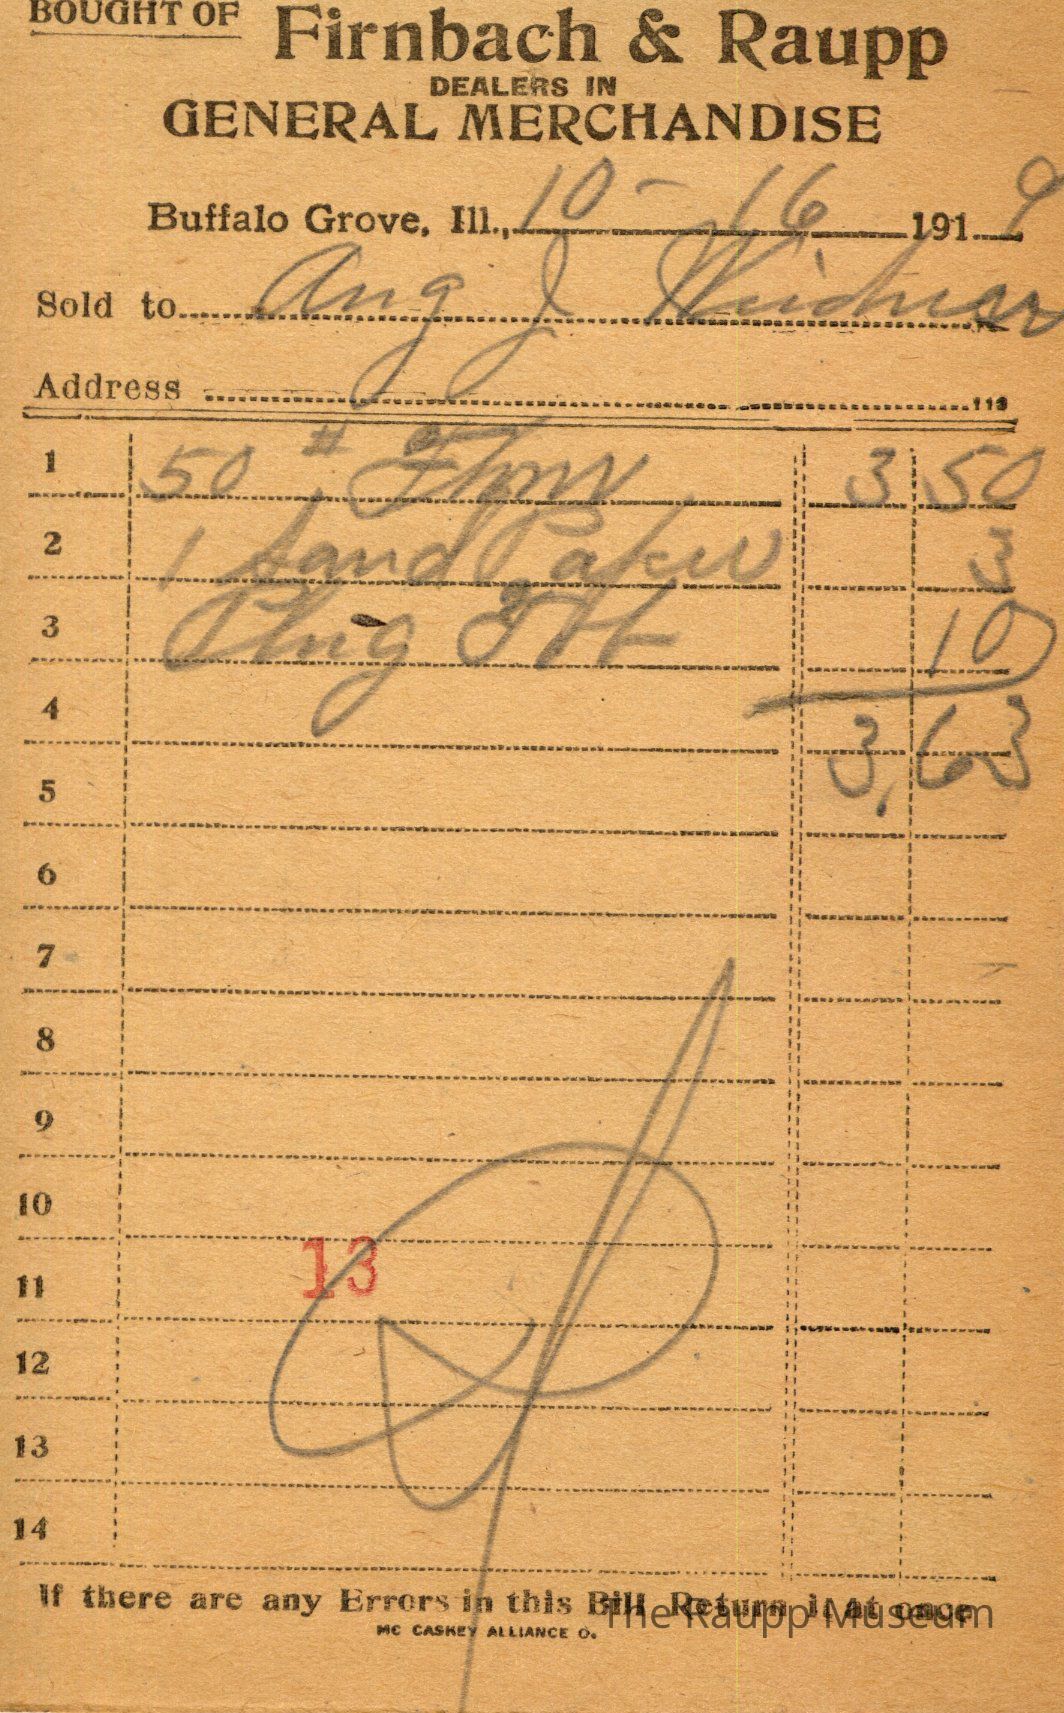 BOUGHT OF Firnbach & Raupp
DEALERS IN
GENERAL MERCHANDISE
Buffalo Grove, Ill., 10 - 16 1919
Sold to Aug J Weidner
Address
113
1 50 # Flour 3 50
2 1 Sand Paper 3
3 Plug Tob 10
4 3,63
5
6
7
8
9
10
13
11
12
13
14
If there are any Errors in this Bill Return it at once
The Raupp Museum
MC CASKEY ALLIANCE O.